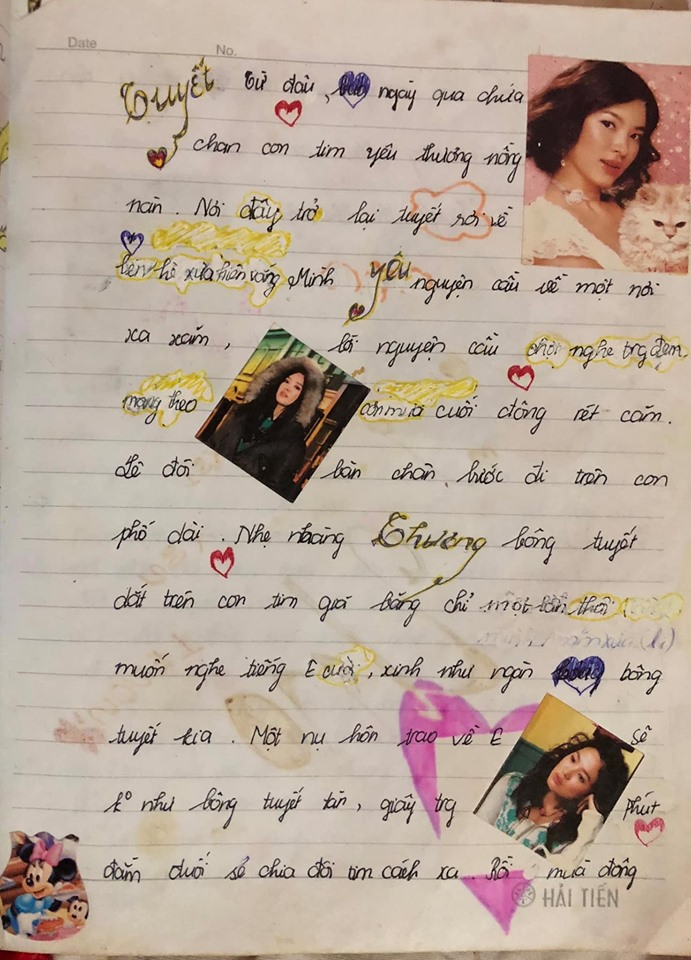 Date No.
Tuyết Từ đâu, ngày qua chứa
chan con tim yêu thương nồng
nàn. Nơi đây trở lại tuyết rơi về
bên hè xưa hiên vắng Mình yêu nguyện cầu về một nơi
xa xăm, lời nguyện cầu chợt nghe trg đêm
mang theo cơn mưa cuối đông rét căm.
Lê đôi bàn chân bước đi trên con
phố dài. Nhẹ nhàng Thương bông tuyết
dắt trên con tim giá băng chỉ một lần thôi
muốn nghe tiếng E cười, xinh như ngàn bông
tuyết kia. Một nụ hôn trao về E sẽ
ko như bông tuyết tàn, giây trg phút
đắm đuối sẽ chia đôi tim cách xa. Rồi mùa đông
HẢI TIẾN